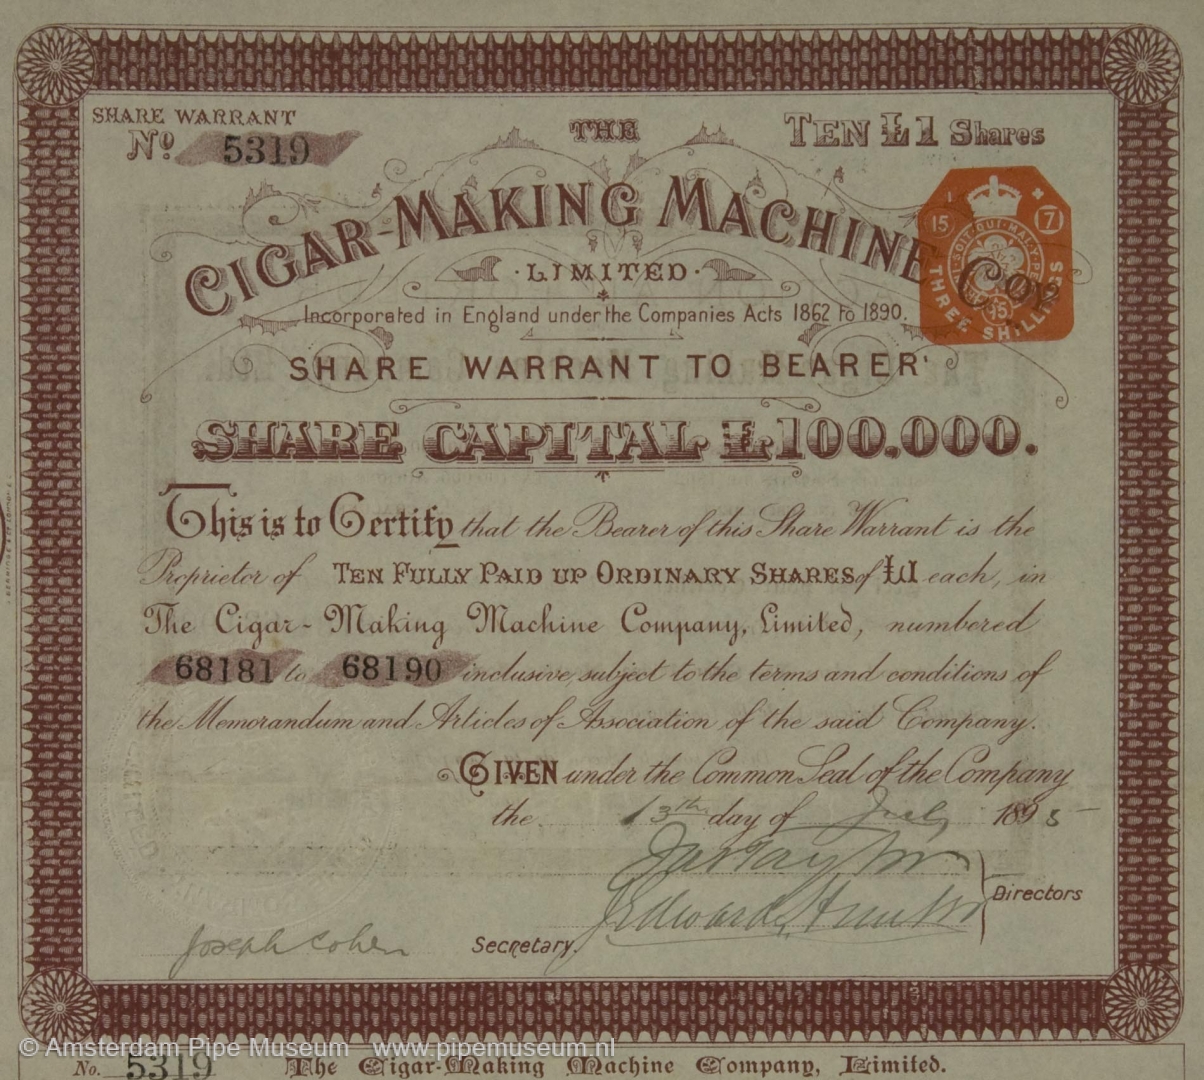 SHARE WARRANT
No. 5319
THE
TEN £1 Shares
CIGAR-MAKING MACHINE Coy
LIMITED
15 7
THREE SHILLINGS
Incorporated in England under the Companies Acts 1862 to 1890.
SHARE WARRANT TO BEARER
SHARE CAPITAL £100,000.
This is to Certify that the Bearer of this Share Warrant is the
Proprietor of TEN FULLY PAID UP ORDINARY SHARES of £1 each, in
The Cigar-Making Machine Company, Limited, numbered
68181 to 68190 inclusive, subject to the terms and conditions of
the Memorandum and Articles of Association of the said Company.
GIVEN under the Common Seal of the Company
the 13th day of July 1895
Directors
Joseph Cohen Secretary.
© Amsterdam Pipe Museum www.pipemuseum.nl
No. 5319 The Cigar-Making Machine Company, Limited.